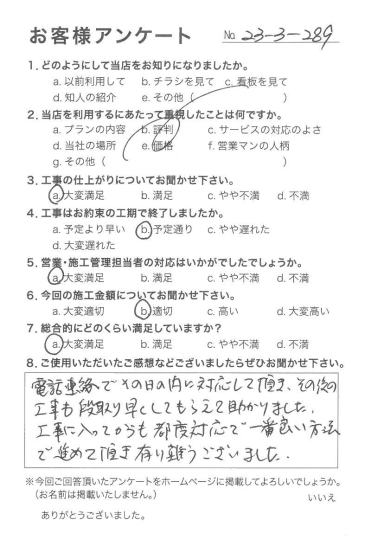 お客様アンケート No 23-3-289
1. どのようにして当店をお知りになりましたか。
a. 以前利用して b. チラシを見て c. 看板を見て
d. 知人の紹介 e. その他（ ）
2. 当店を利用するにあたって重視したことは何ですか。
a. プランの内容 b. 評判 c. サービスの対応のよさ
d. 当社の場所 e. 価格 f. 営業マンの人柄
g. その他（ ）
3. 工事の仕上がりについてお聞かせ下さい。
a. 大変満足 b. 満足 c. やや不満 d. 不満
4. 工事はお約束の工期で終了しましたか。
a. 予定より早い b. 予定通り c. やや遅れた
d. 大変遅れた
5. 営業・施工管理担当者の対応はいかがでしたでしょうか。
a. 大変満足 b. 満足 c. やや不満 d. 不満
6. 今回の施工金額についてお聞かせ下さい。
a. 大変適切 b. 適切 c. 高い d. 大変高い
7. 総合的にどのくらい満足していますか？
a. 大変満足 b. 満足 c. やや不満 d. 不満
8. ご使用いただいたご感想などございましたらぜひお聞かせ下さい。
電話連絡でその日の内に対応して頂き、その後の
工事も段取り早くしてもらえて助かりました。
工事に入ってからも都度対応で一番良い方法
で進めて頂き有り難うございました。
※今回ご回答頂いたアンケートをホームページに掲載してよろしいでしょうか。
（お名前は掲載いたしません。） いいえ
ありがとうございました。